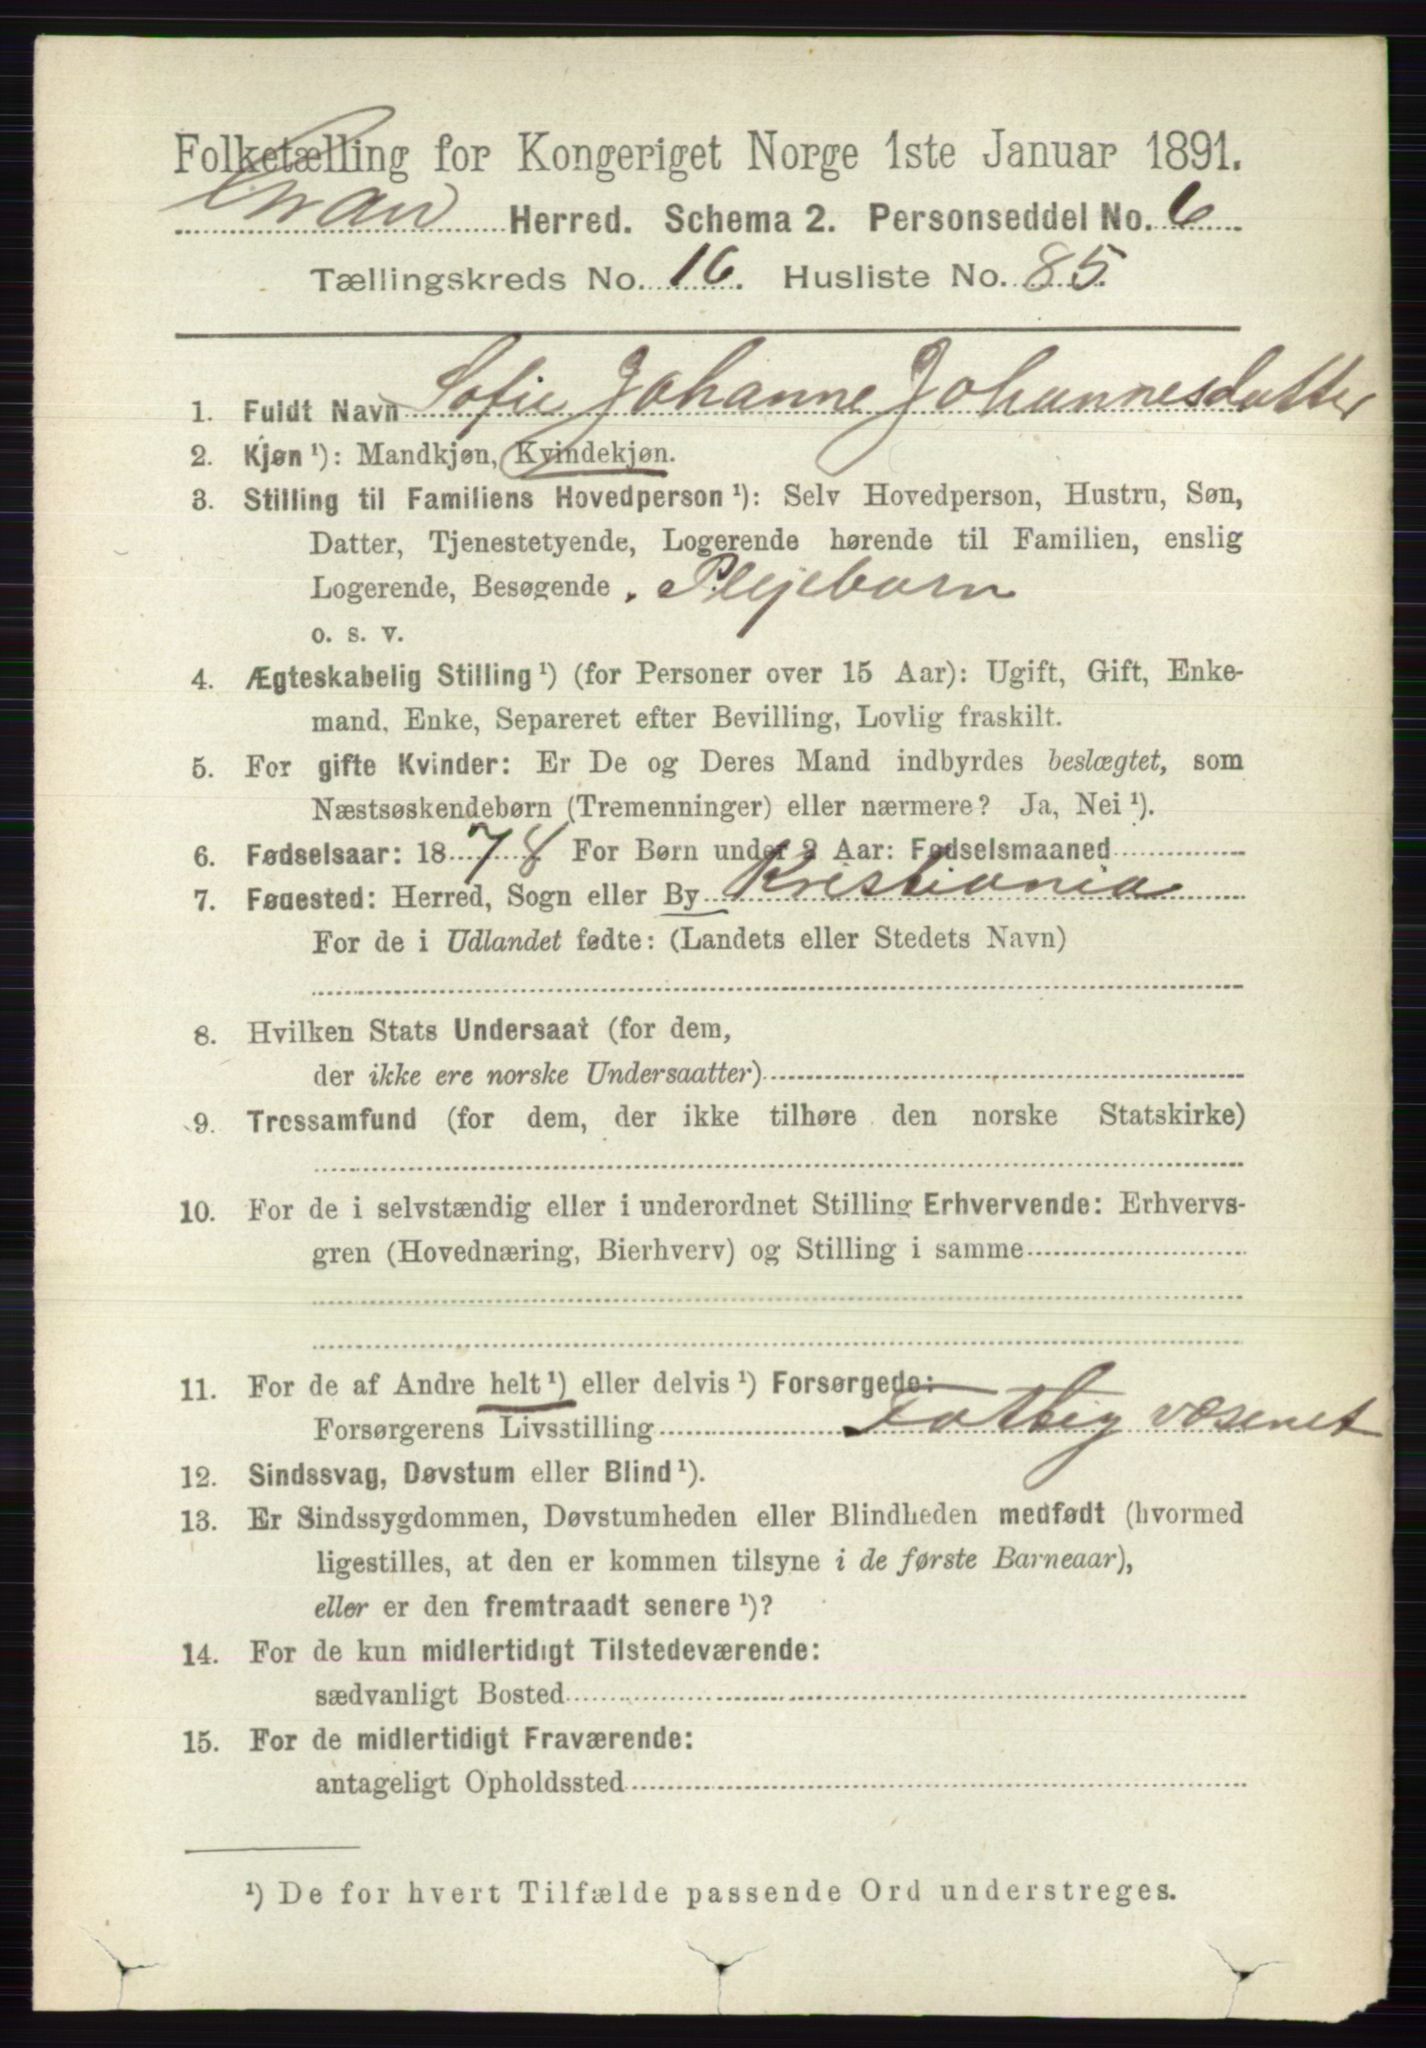 Folketælling for Kongeriget Norge 1ste Januar 1891.
Gran Herred. Schema 2. Personseddel No. 6
Tællingskreds No. 16. Husliste No. 85.
1. Fuldt Navn Sofie Johanne Johannesdatter
2. Kjøn ¹): Mandkjøn, Kvindekjøn.
3. Stilling til Familiens Hovedperson ¹): Selv Hovedperson, Hustru, Søn,
Datter, Tjenestetyende, Logerende hørende til Familien, enslig
Logerende, Besøgende . Plejebarn
o. s. v.
4. Ægteskabelig Stilling ¹) (for Personer over 15 Aar): Ugift, Gift, Enke-
mand, Enke, Separeret efter Bevilling, Lovlig fraskilt.
5. For gifte Kvinder: Er De og Deres Mand indbyrdes beslægtet, som
Næstsøskendebørn (Tremenninger) eller nærmere? Ja, Nei ¹).
6. Fødselsaar: 1878 For Børn under 2 Aar: Fødselsmaaned
7. Fødested: Herred, Sogn eller By Kristiania
For de i Udlandet fødte: (Landets eller Stedets Navn)
8. Hvilken Stats Undersaat (for dem,
der ikke ere norske Undersaatter)
9. Trossamfund (for dem, der ikke tilhøre den norske Statskirke)
10. For de i selvstændig eller i underordnet Stilling Erhvervende: Erhvervs-
gren (Hovednæring, Bierhverv) og Stilling i samme
11. For de af Andre helt ¹) eller delvis ¹) Forsørgede:
Forsørgerens Livsstilling Fattigvæsenet
12. Sindssvag, Døvstum eller Blind ¹).
13. Er Sindssygdommen, Døvstumheden eller Blindheden medfødt (hvormed
ligestilles, at den er kommen tilsyne i de første Barneaar),
eller er den fremtraadt senere ¹)?
14. For de kun midlertidigt Tilstedeværende:
sædvanligt Bosted
15. For de midlertidigt Fraværende:
antageligt Opholdssted
¹) De for hvert Tilfælde passende Ord understreges.